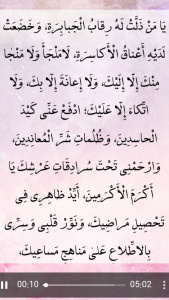 يَا مَنْ ذَلَّتْ لَهُ رِقَابُ الْجَبَابِرَةِ، وَخَضَعَتْ
لَدَيْهِ أَعْنَاقُ الْأَكَاسِرَةِ، لَامَلْجَأَ وَلَا مَنْجَا
مِنْكَ إِلَّا إِلَيْكَ، وَلَا إِعَانَةَ إِلَّا بِكَ، وَلَا
اتِّكَاءَ إِلَّا عَلَيْكَ؛ ادْفَعْ عَنِّي كَيْدَ
الْحَاسِدِينَ، وَظُلُمَاتِ شَرِّ الْمُعَانِدِينَ،
وَارْحَمْنِي تَحْتَ سُرَادِقَاتِ عَرْشِكَ يَا
أَكْرَمَ الْأَكْرَمِينَ، أَيِّدْ ظَاهِرِي فِي
تَحْصِيلِ مَرَاضِيكَ، وَنَوِّرْ قَلْبِي وَسِرِّي
بِالْاِطِّلَاعِ عَلَىٰ مَنَاهِجِ مَسَاعِيكَ،
00:10 05:02